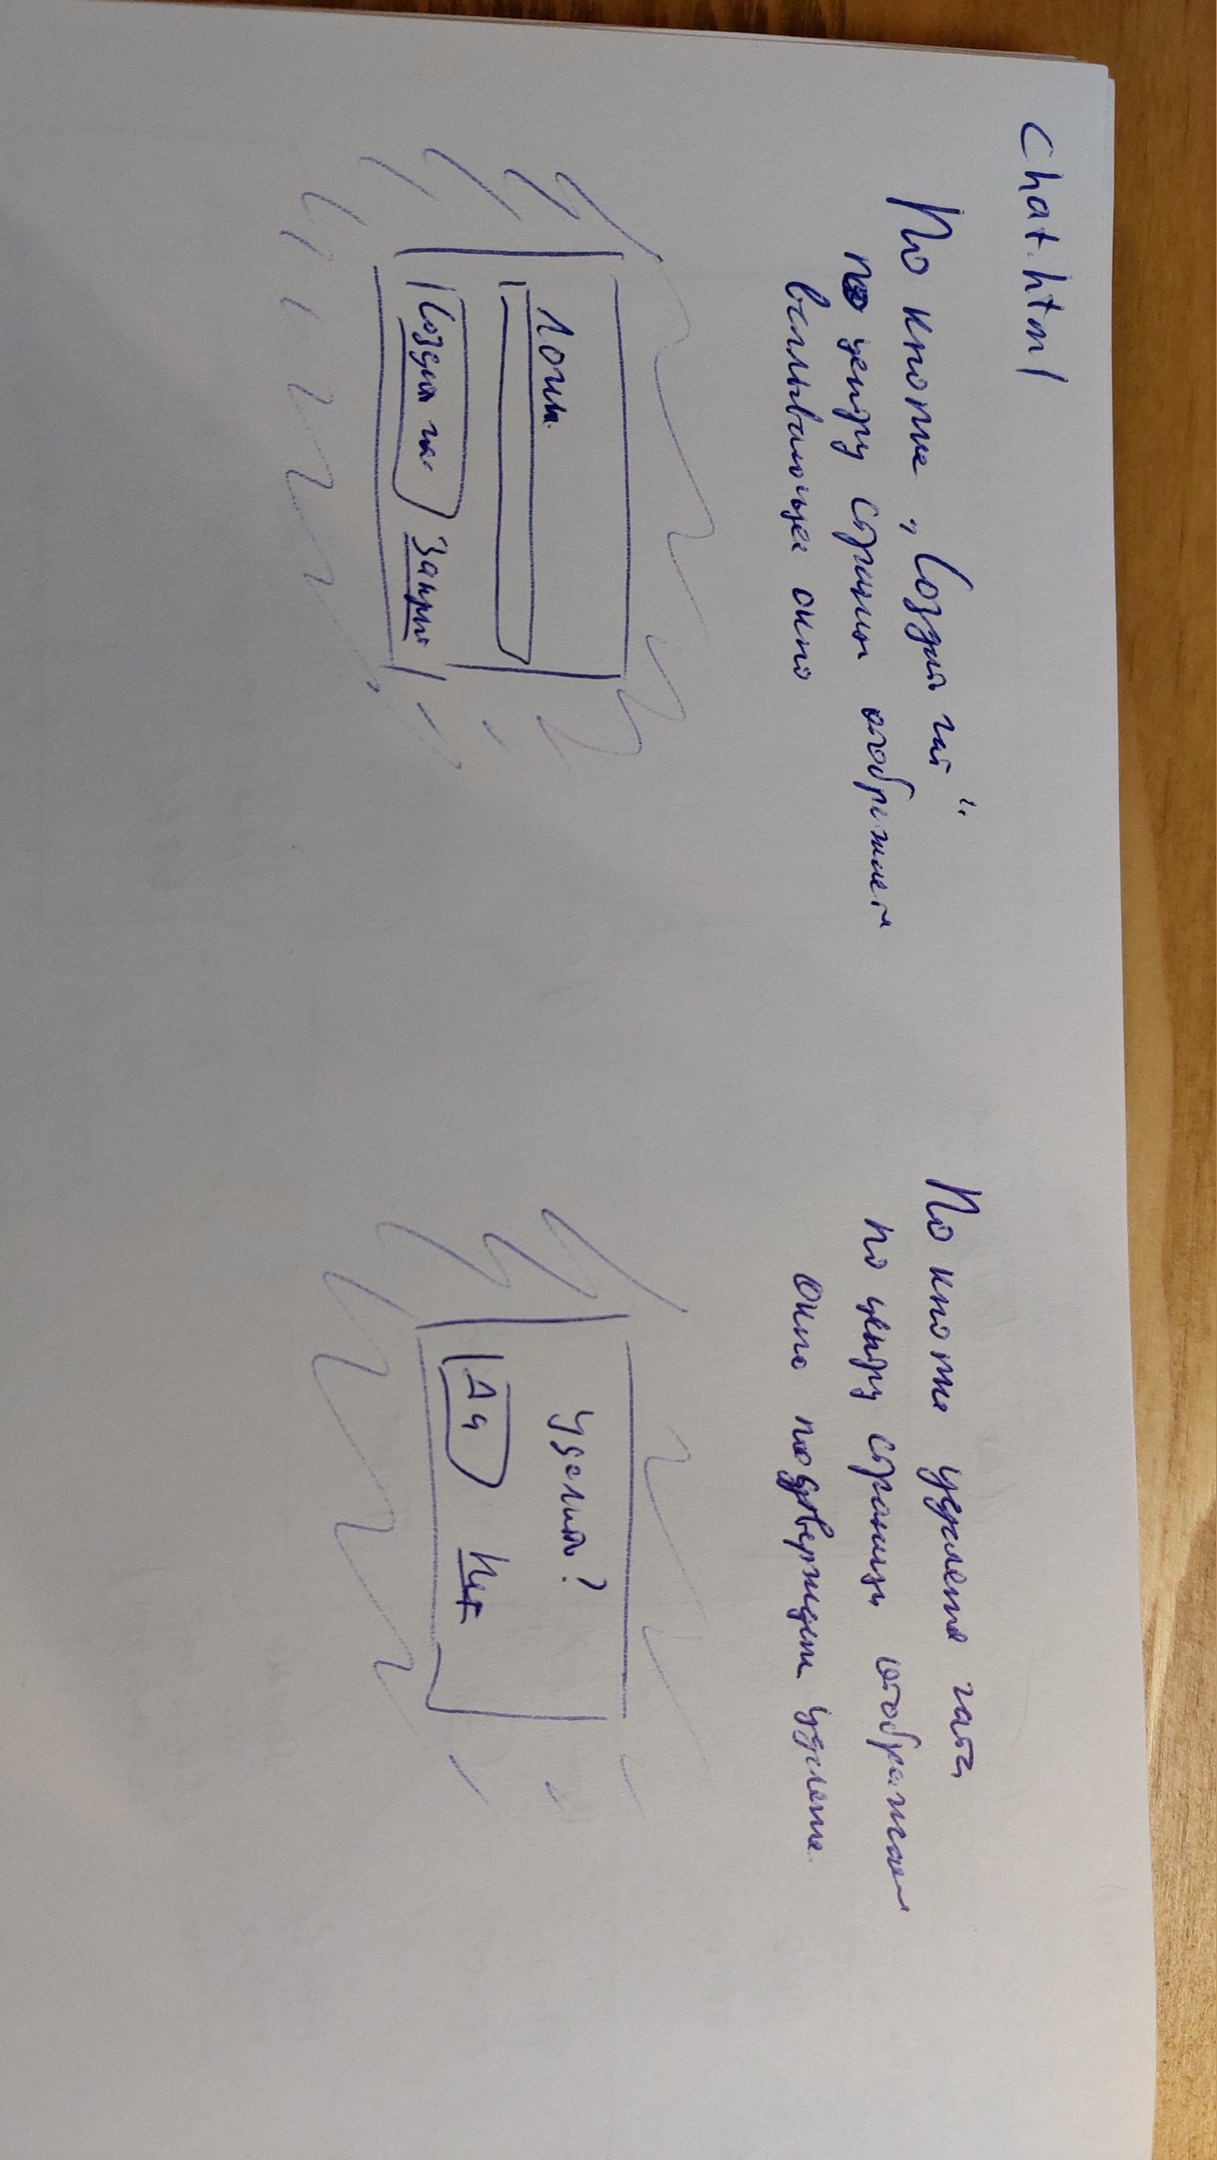 Chat.html
По кнопке „Создать чат“
по центру страницы отображает
всплывающее окно
Логин
Создать чат
Закрыть
По кнопке удаления чата
по центру страницы отображает
окно подтверждения удаления.
Удалить?
Да
Нет